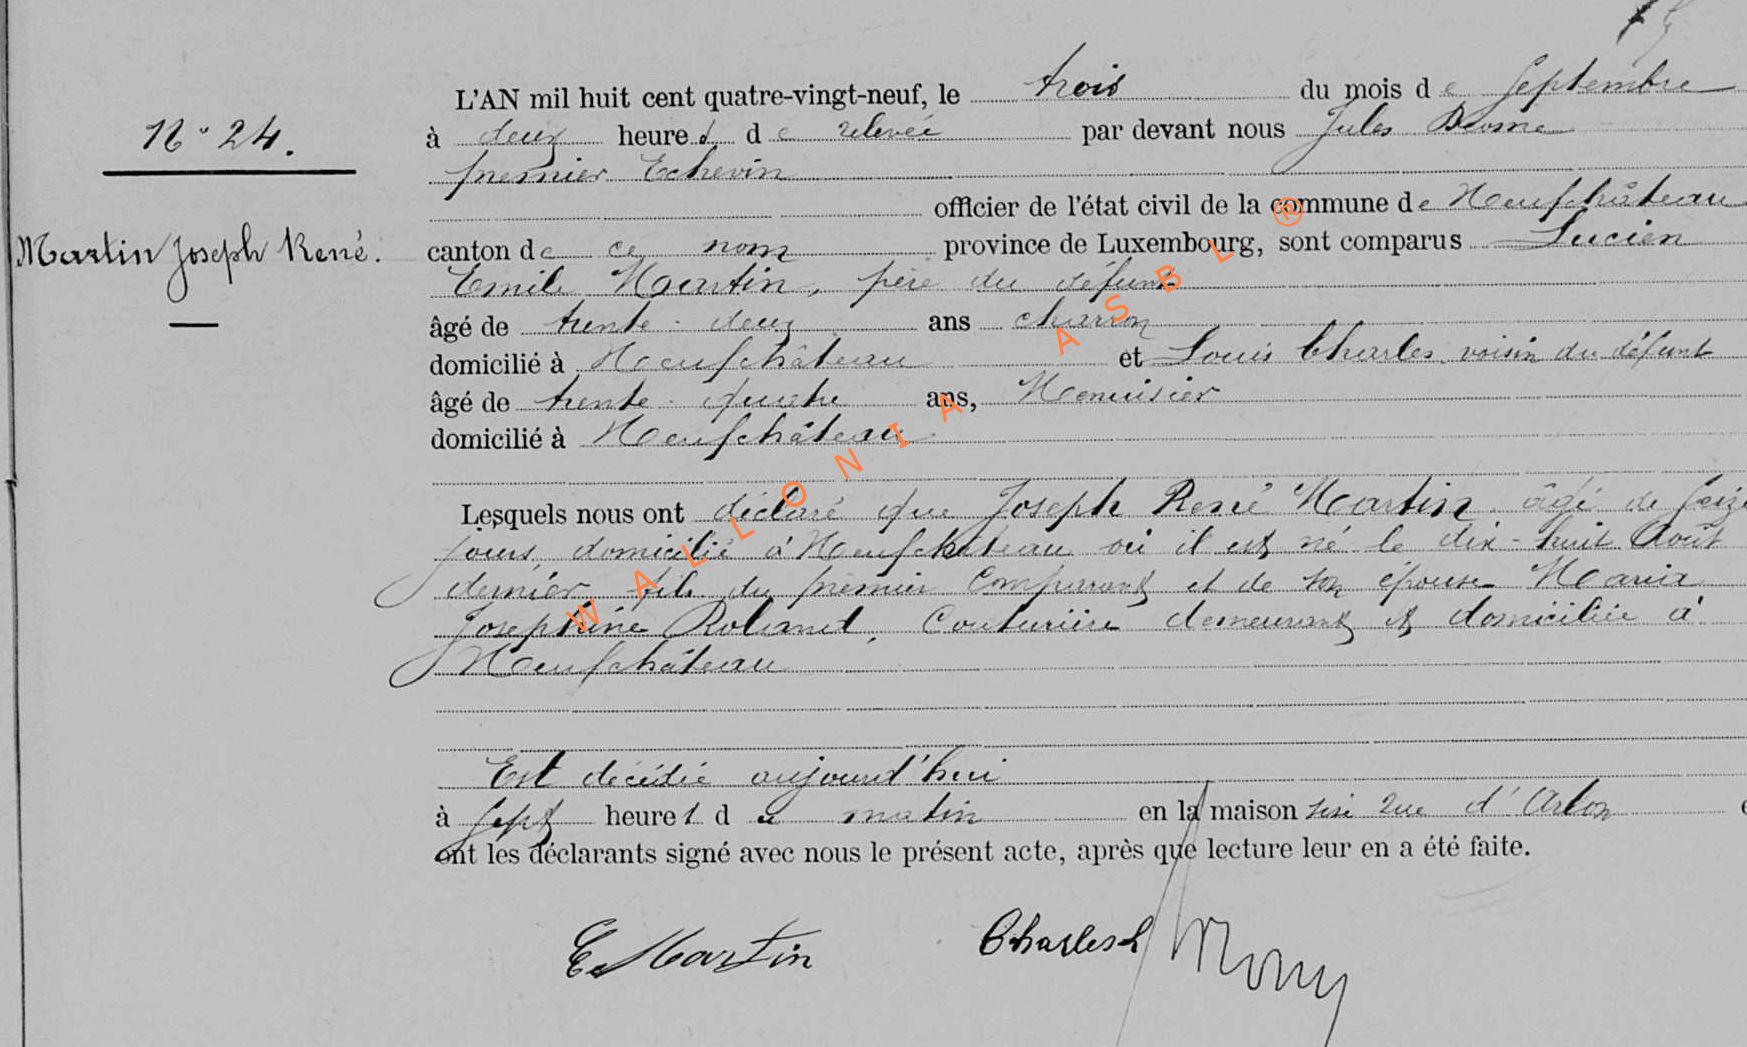 L'AN mil huit cent quatre-vingt-neuf, le trois du mois de Septembre
N° 24.
à deux heures de relevée par devant nous Jules
premier Echevin
officier de l'état civil de la commune de Neufchâteau
Martin Joseph René.
canton de ce nom province de Luxembourg, sont comparus Lucien
Emile Martin, père du défunt
âgé de trente-deux ans charron
domicilié à Neufchâteau et Louis Charles voisin du défunt
âgé de trente-quatre ans, Menuisier
domicilié à Neufchâteau
Lesquels nous ont déclaré que Joseph René Martin âgé de seize
jours, domicilié à Neufchâteau où il est né le dix-huit Août
dernier, fils du premier Comparant et de son épouse Maria
Josephine Roland, Couturière demeurant et domiciliée à
Neufchâteau
Est décédé aujourd'hui
à sept heures du matin en la maison sise rue d'Arlon
ont les déclarants signé avec nous le présent acte, après que lecture leur en a été faite.
E Martin Charles L
WALLONIA ASBL ®